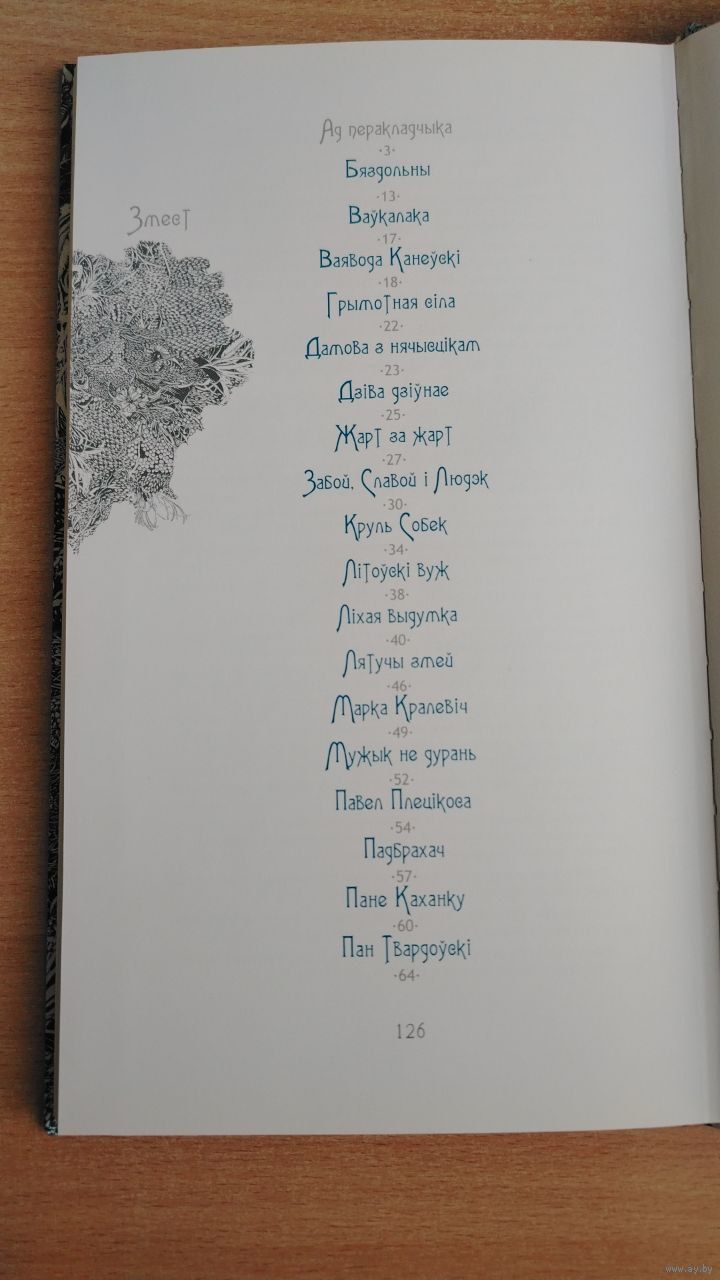 Змест
Ад перакладчыка
·3·
Бяздольны
·13·
Ваўкалака
·17·
Ваявода Канеўскі
·18·
Грымотная сіла
·22·
Дамова з нячысцікам
·23·
Дзіва дзіўнае
·25·
Жарт за жарт
·27·
Забой, Славой і Людэк
·30·
Круль Собек
·34·
Літоўскі вуж
·38·
Ліхая выдумка
·40·
Лятучы змей
·46·
Марка Кралевіч
·49·
Мужык не дурань
·52·
Павел Плецікоса
·54·
Падбрахач
·57·
Пане Каханку
·60·
Пан Твардоўскі
·64·
126
www.ay.by